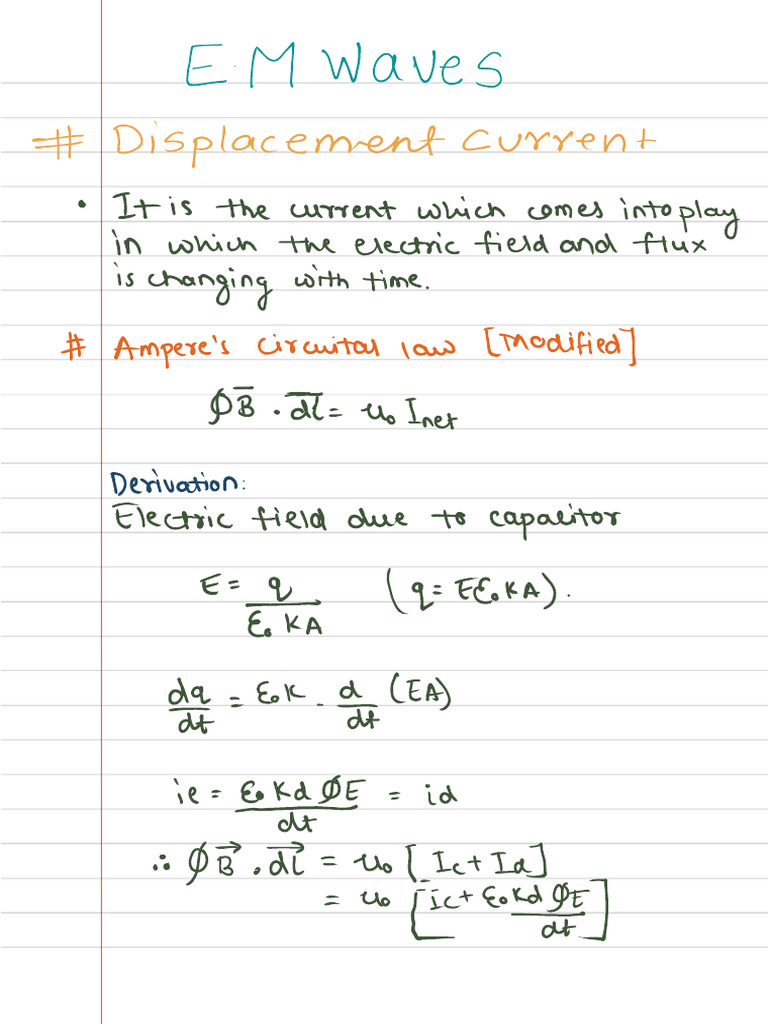 E.M Waves
# Displacement Current
• It is the current which comes into play
in which the electric field and flux
is changing with time.
# Ampere's circuital law [Modified]
∮B̅ . d̅l̅ = u₀ Inet
Derivation:
Electric field due to capacitor
E = q / ε₀ KA (q = Eε₀KA).
dq/dt = ε₀K . d/dt (EA)
ie = ε₀ Kd ϕE / dt = id
∴ ∮B⃗ . dl⃗ = u₀ [Ic + Id]
= u₀ [ic + ε₀Kd ϕE / dt]